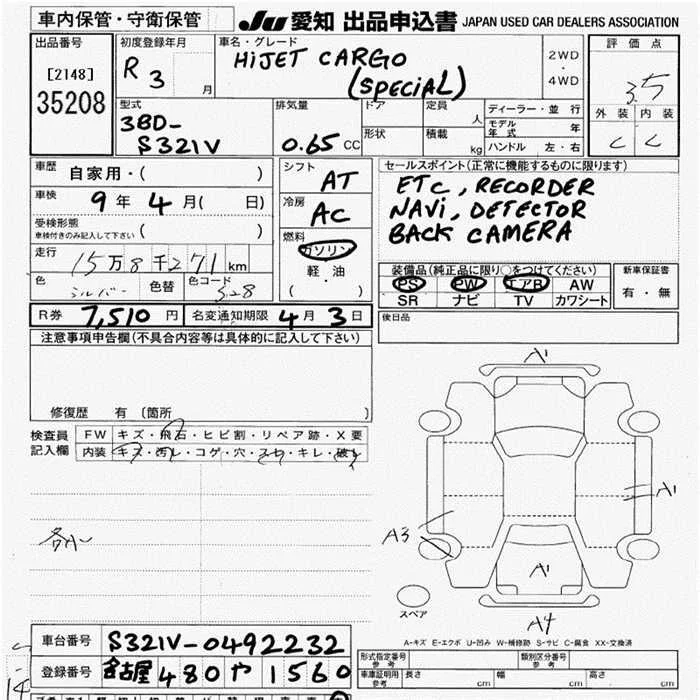 車内保管・守衛保管 JU 愛知 出品申込書 JAPAN USED CAR DEALERS ASSOCIATION
出品番号
[2148]
35208
初度登録年月
R 3 月
車名・グレード
HIJET CARGO
(SPECIAL)
2WD
・
4WD
評価点
3.5
外装 内装
C C
型式
3BD-
S321V
排気量
0.65 CC
ドア
形状
定員
人
積載
kg
ディーラー・並行
モデル年式 年
ハンドル 左・右
車歴
自家用・( )
車検
9年 4月( 日)
受検形態
車検付きのみ記入して下さい ( )
走行
15万8千271km
色
シルバー
色替
色コード
S28
シフト
AT
冷房
AC
燃料
ガソリン
軽・油
( )
セールスポイント(正常に機能するものに限ります)
ETC, RECORDER
NAVI, DETECTOR
BACK CAMERA
装備品(純正品に限り○をつけてください)
PS PW エアB AW
SR ナビ TV カワシート
新車保証書
有・無
R券 7,510円 名変通知期限 4月3日
後日品
注意事項申告欄(不具合内容等は具体的に記入して下さい)
修復歴 有 〔箇所 〕
検査員
記入欄
FW キズ・飛石・ヒビ割・リペア跡・X要
内装 キズ・汚レ・コゲ・穴・スレ・キレ・破レ
各A~
A1
A1
A3
A1
A4
スペア
A-キズ E-エクボ U-凹み W-補修跡 S-サビ C-腐食 XX-交換済
車台番号 S321V-0492232
登録番号 名古屋 480 や 1560
形式指定番号
参考
類別区分番号
参考
車庫証明用
参考
長さ cm 幅 cm 高さ cm